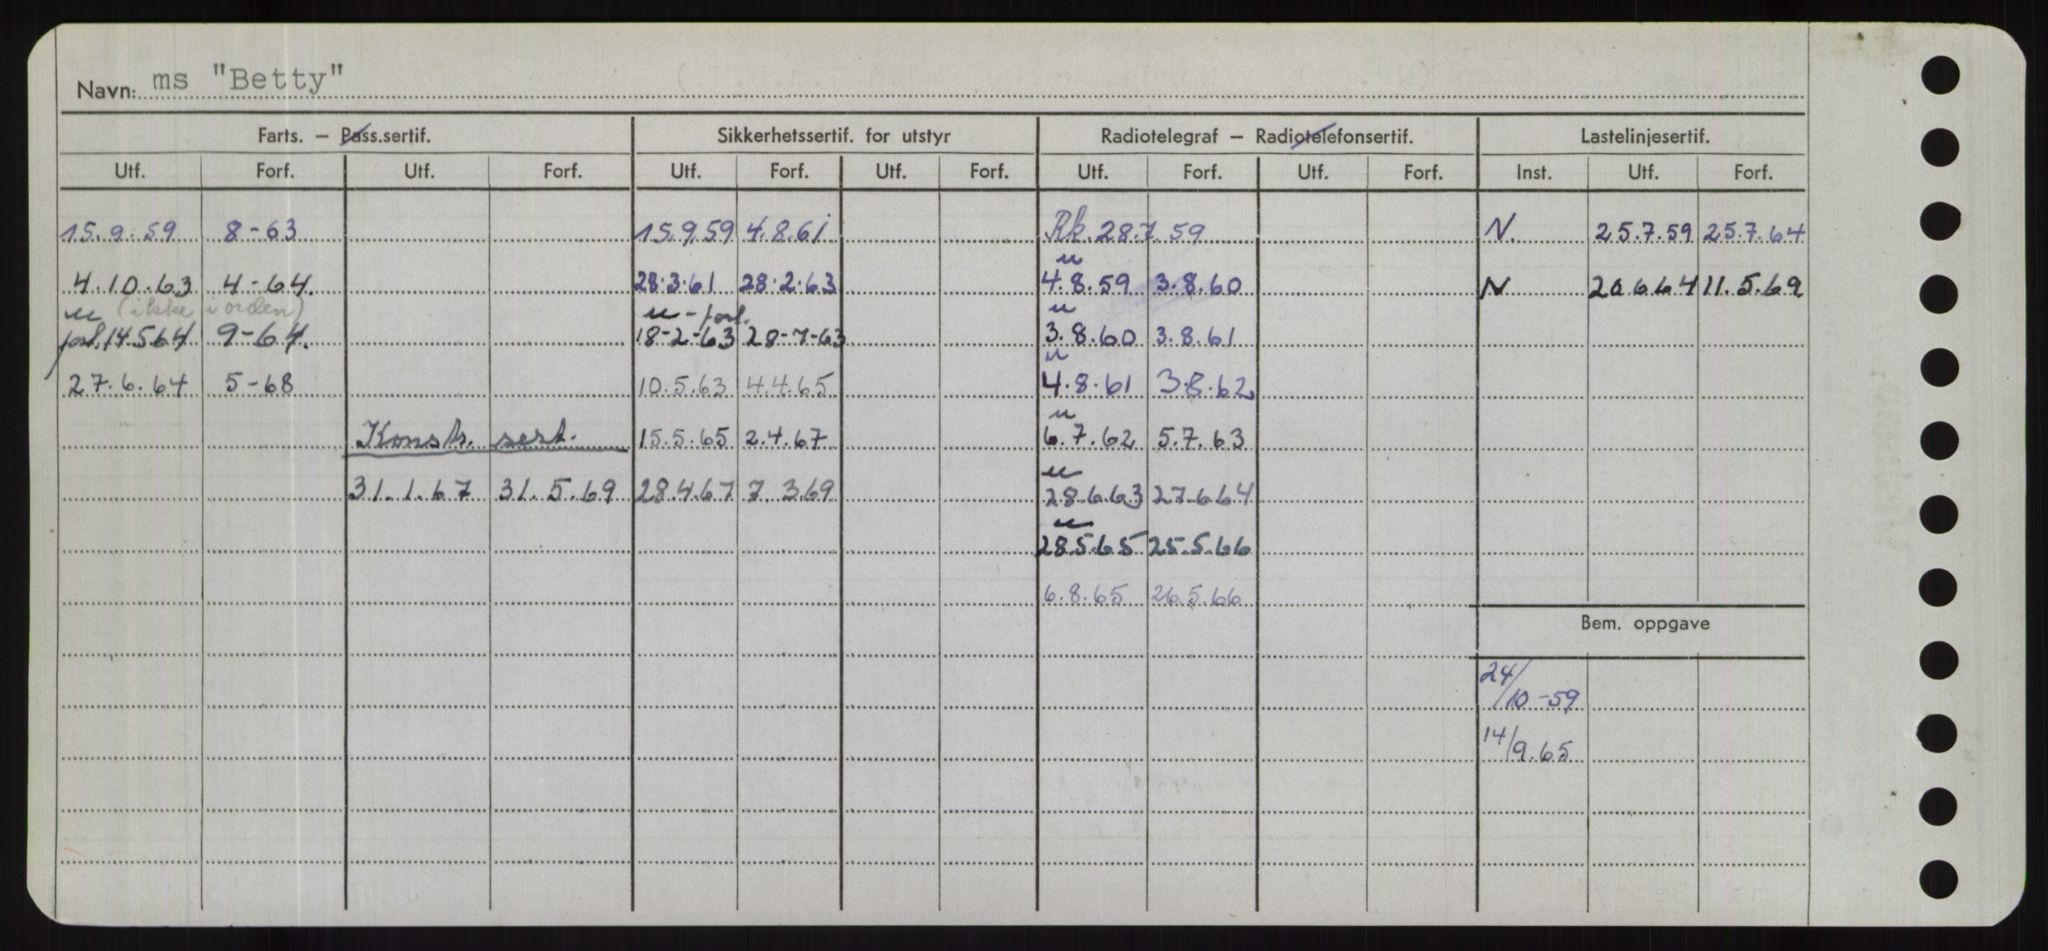 Navn: ms "Betty"
Farts. — Pass.sertif. Sikkerhetssertif. for utstyr Radiotelegraf — Radiotelefonsertif. Lastelinjesertif.
Utf. Forf. Utf. Forf. Utf. Forf. Utf. Forf. Utf. Forf. Utf. Forf. Inst. Utf. Forf.
15.9.59 8-63 15.9.59 4.8.61 Rk. 28.7.59 N. 25.7.59 25.7.64
u
4.10.63 4-64. 28.3.61 28.2.63 4.8.59 3.8.60 N 20.6.64 11.5.69
u (ikke i orden) u - forl. u
forl. 14.5.64 9-64. 18-2-63 28-7-63 3.8.60 3.8.61
u
27.6.64 5-68 10.5.63 4.4.65 4.8.61 3.8.62
u
Konstr. sert. 15.5.65 2.4.67 6.7.62 5.7.63
u
31.1.67 31.5.69 28.4.67 7 3.69 28.6.63 27.6.64
u
28.5.65 25.5.66
6.8.65 26.5.66
Bem. oppgave
24/10-59
14/9.65